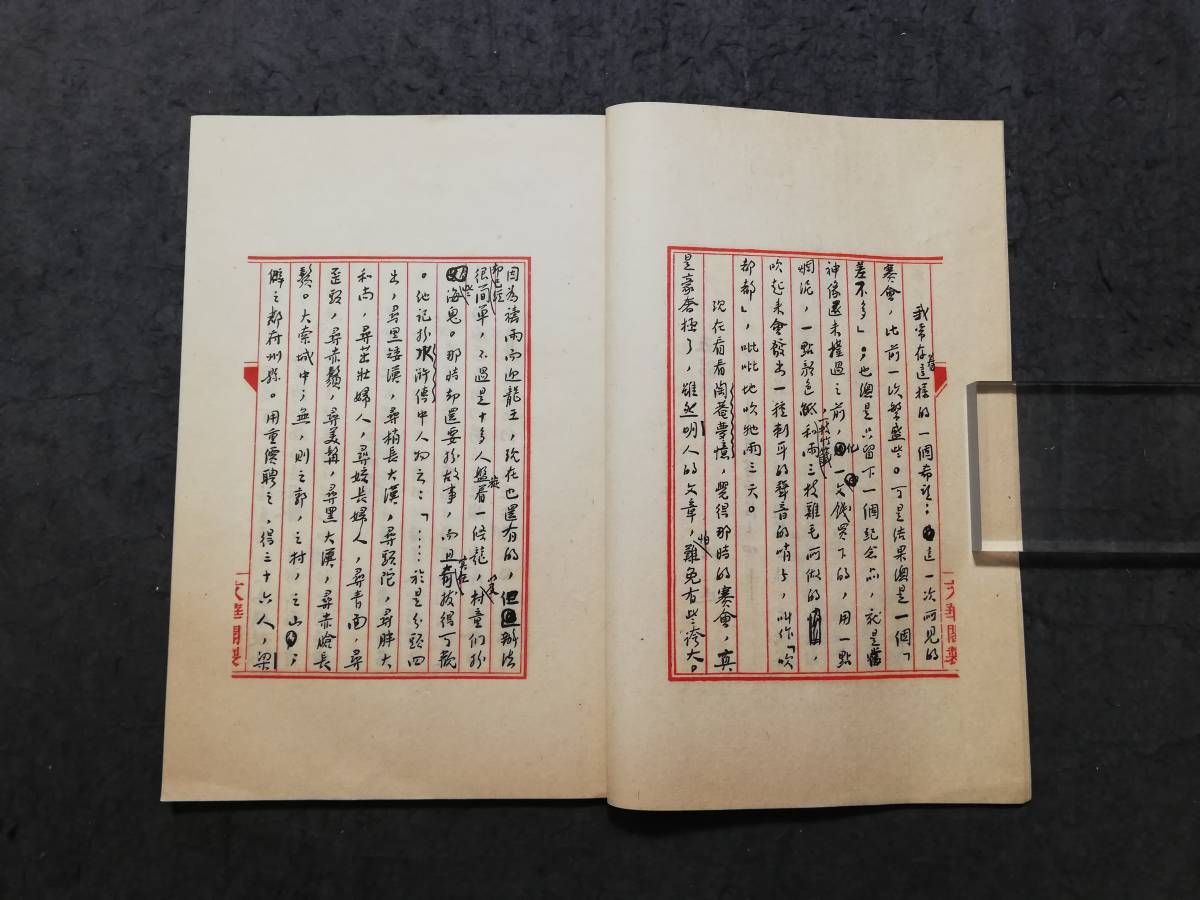 我常存着這樣的一個希望：這一次所見的
賽會，比前一次繁盛些。可是結果總是一個「
差不多」；也總是只留下一個紀念品，就是當
神像還未擡過之前，化一文錢買下的，用一點
爛泥，一點顏色紙，一枝竹籤和兩三枝雞毛所做的，
吹起來會發出一種刺耳的聲音的哨子，叫作「吹
都都」，吡吡地吹牠兩三天。
現在看看陶菴夢憶，覺得那時的賽會，真
是豪奢極了，雖然明人的文章，怕難免有些誇大。
文華閣製
因為禱雨而迎龍王，現在也還有的，但辦法
卻已經很簡單，不過是十多人盤旋着一條龍，村童們扮
些海鬼。那時卻還要扮故事，而且實在奇拔得可觀
。他記扮水滸傳中人物云：「……於是分頭四
出，尋黑矮漢，尋梢長大漢，尋頭陀，尋胖大
和尚，尋茁壯婦人，尋姣長婦人，尋青面，尋
歪頭，尋赤鬚，尋美髯，尋黑大漢，尋赤臉長
鬚。大索城中；無，則之郭，之村，之山；
僻之鄰府州縣。用重價聘之，得三十六人，梁
文華閣製